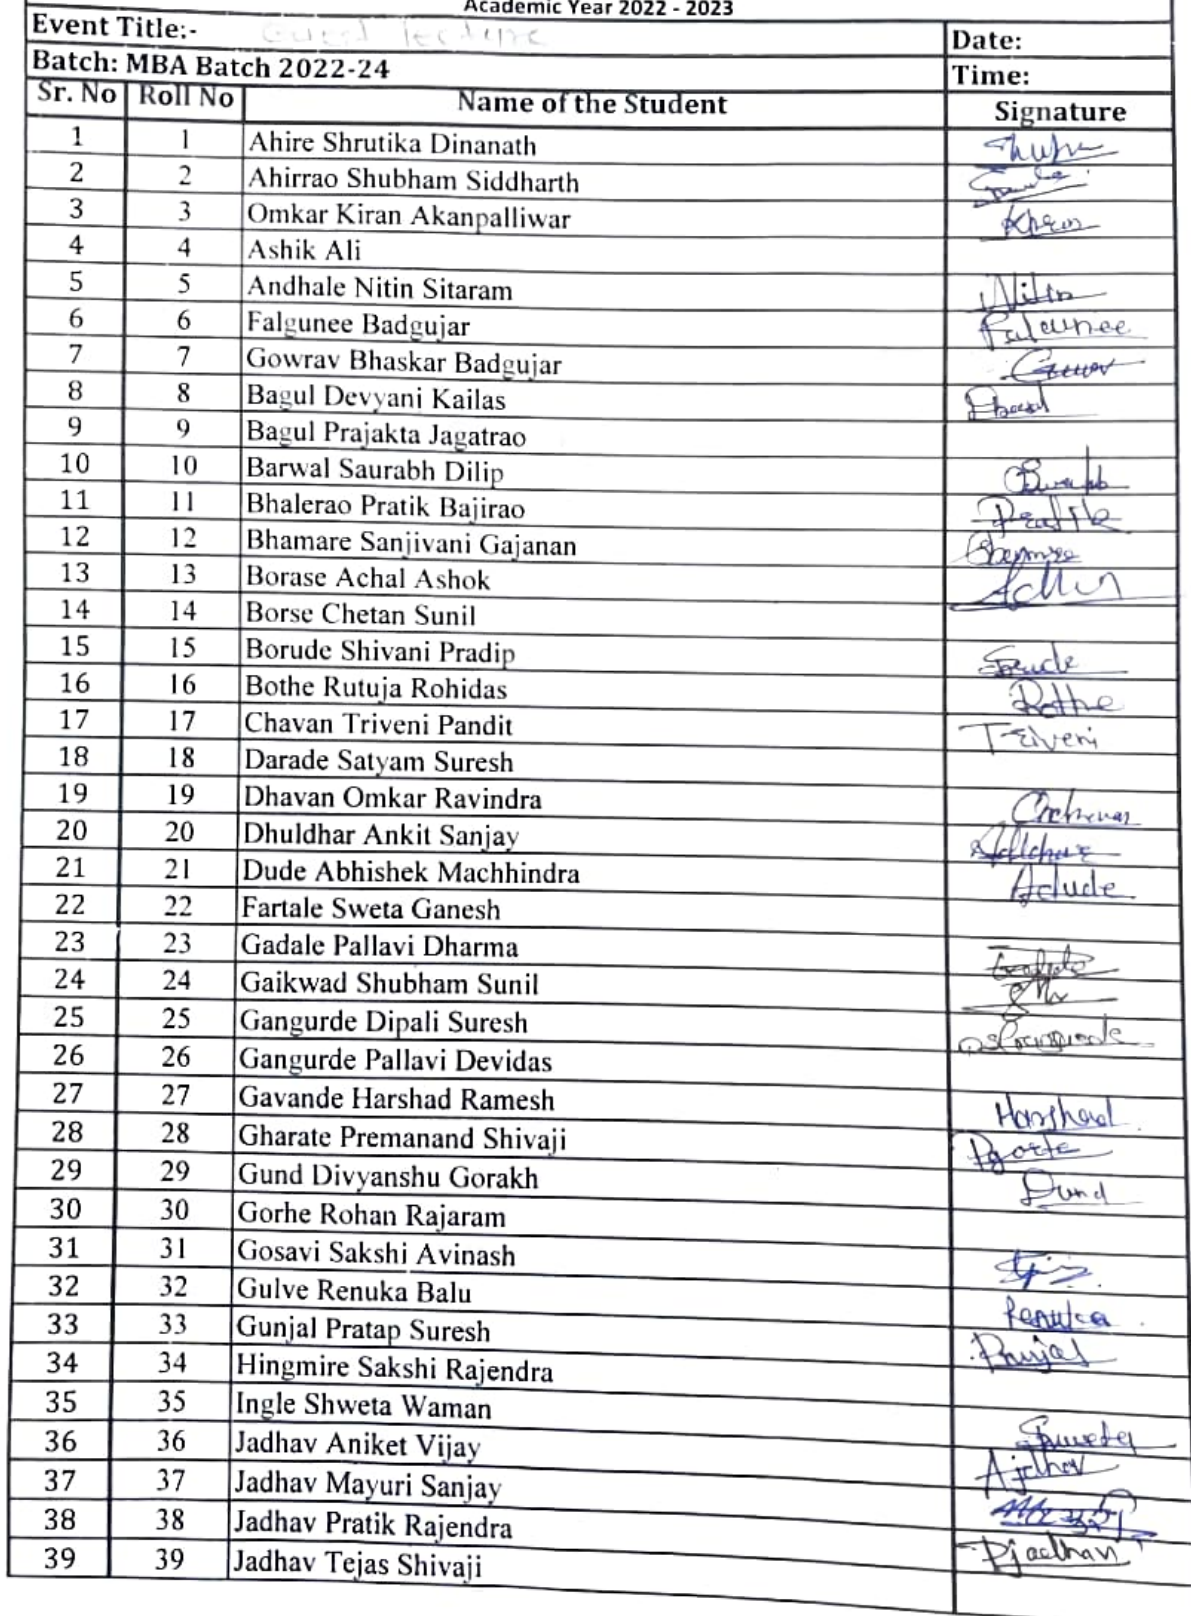 Academic Year 2022 - 2023
Event Title:- Guest lecture Date:
Batch: MBA Batch 2022-24 Time:
Sr. No Roll No Name of the Student Signature
1 1 Ahire Shrutika Dinanath
2 2 Ahirrao Shubham Siddharth
3 3 Omkar Kiran Akanpalliwar
4 4 Ashik Ali
5 5 Andhale Nitin Sitaram Nitin
6 6 Falgunee Badgujar Falgunee
7 7 Gowrav Bhaskar Badgujar
8 8 Bagul Devyani Kailas
9 9 Bagul Prajakta Jagatrao
10 10 Barwal Saurabh Dilip
11 11 Bhalerao Pratik Bajirao Pratik
12 12 Bhamare Sanjivani Gajanan
13 13 Borase Achal Ashok
14 14 Borse Chetan Sunil
15 15 Borude Shivani Pradip
16 16 Bothe Rutuja Rohidas Rothe
17 17 Chavan Triveni Pandit Triveni
18 18 Darade Satyam Suresh
19 19 Dhavan Omkar Ravindra
20 20 Dhuldhar Ankit Sanjay
21 21 Dude Abhishek Machhindra Adude
22 22 Fartale Sweta Ganesh
23 23 Gadale Pallavi Dharma
24 24 Gaikwad Shubham Sunil
25 25 Gangurde Dipali Suresh
26 26 Gangurde Pallavi Devidas
27 27 Gavande Harshad Ramesh Harshad
28 28 Gharate Premanand Shivaji
29 29 Gund Divyanshu Gorakh Dund
30 30 Gorhe Rohan Rajaram
31 31 Gosavi Sakshi Avinash
32 32 Gulve Renuka Balu Renuka
33 33 Gunjal Pratap Suresh
34 34 Hingmire Sakshi Rajendra
35 35 Ingle Shweta Waman
36 36 Jadhav Aniket Vijay Ajadhav
37 37 Jadhav Mayuri Sanjay
38 38 Jadhav Pratik Rajendra Pjadhav
39 39 Jadhav Tejas Shivaji